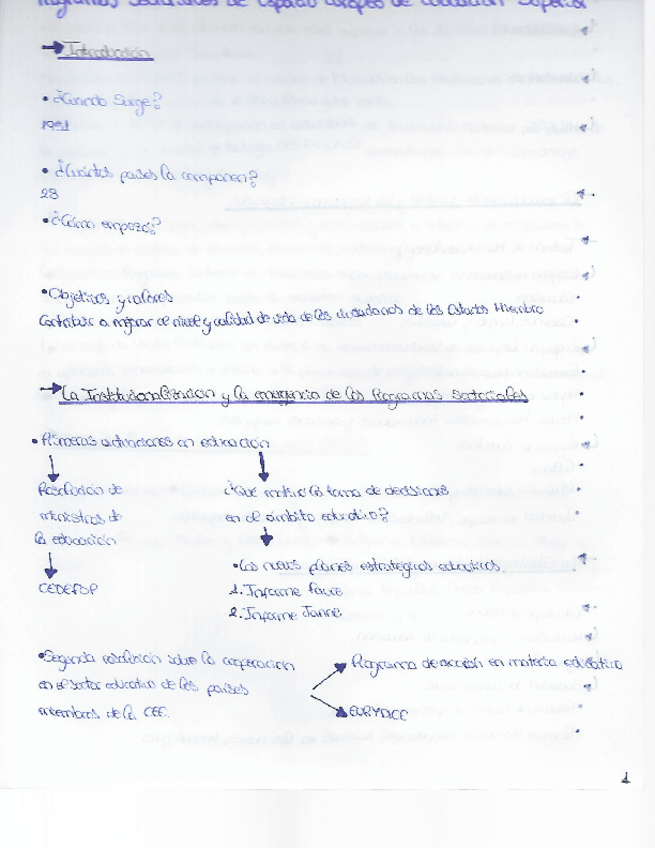 Programas Sectoriales de Espacio Europeo de Educación Superior
→ Introducción
• ¿Cuándo Surge?
1951
• ¿Cuántos países la componen?
28
• ¿Cómo empezó?
• Objetivos y valores
Contribuir a mejorar el nivel y calidad de vida de los ciudadanos de los Estados Miembro
→ La Institucionalización y la emergencia de los Programas Sectoriales
• Primeras actuaciones en educación
Resolución de
ministros de
la educación
CEDEFOP
¿Qué motivó la toma de decisiones
en el ámbito educativo?
• Los nuevos planes estratégicos educativos
1. Informe Faure
2. Informe Janne
• Segunda resolución sobre la cooperación
en el sector educativo de los países
miembros de la CEE.
Programa de acción en materia educativa
EURYDICE
1